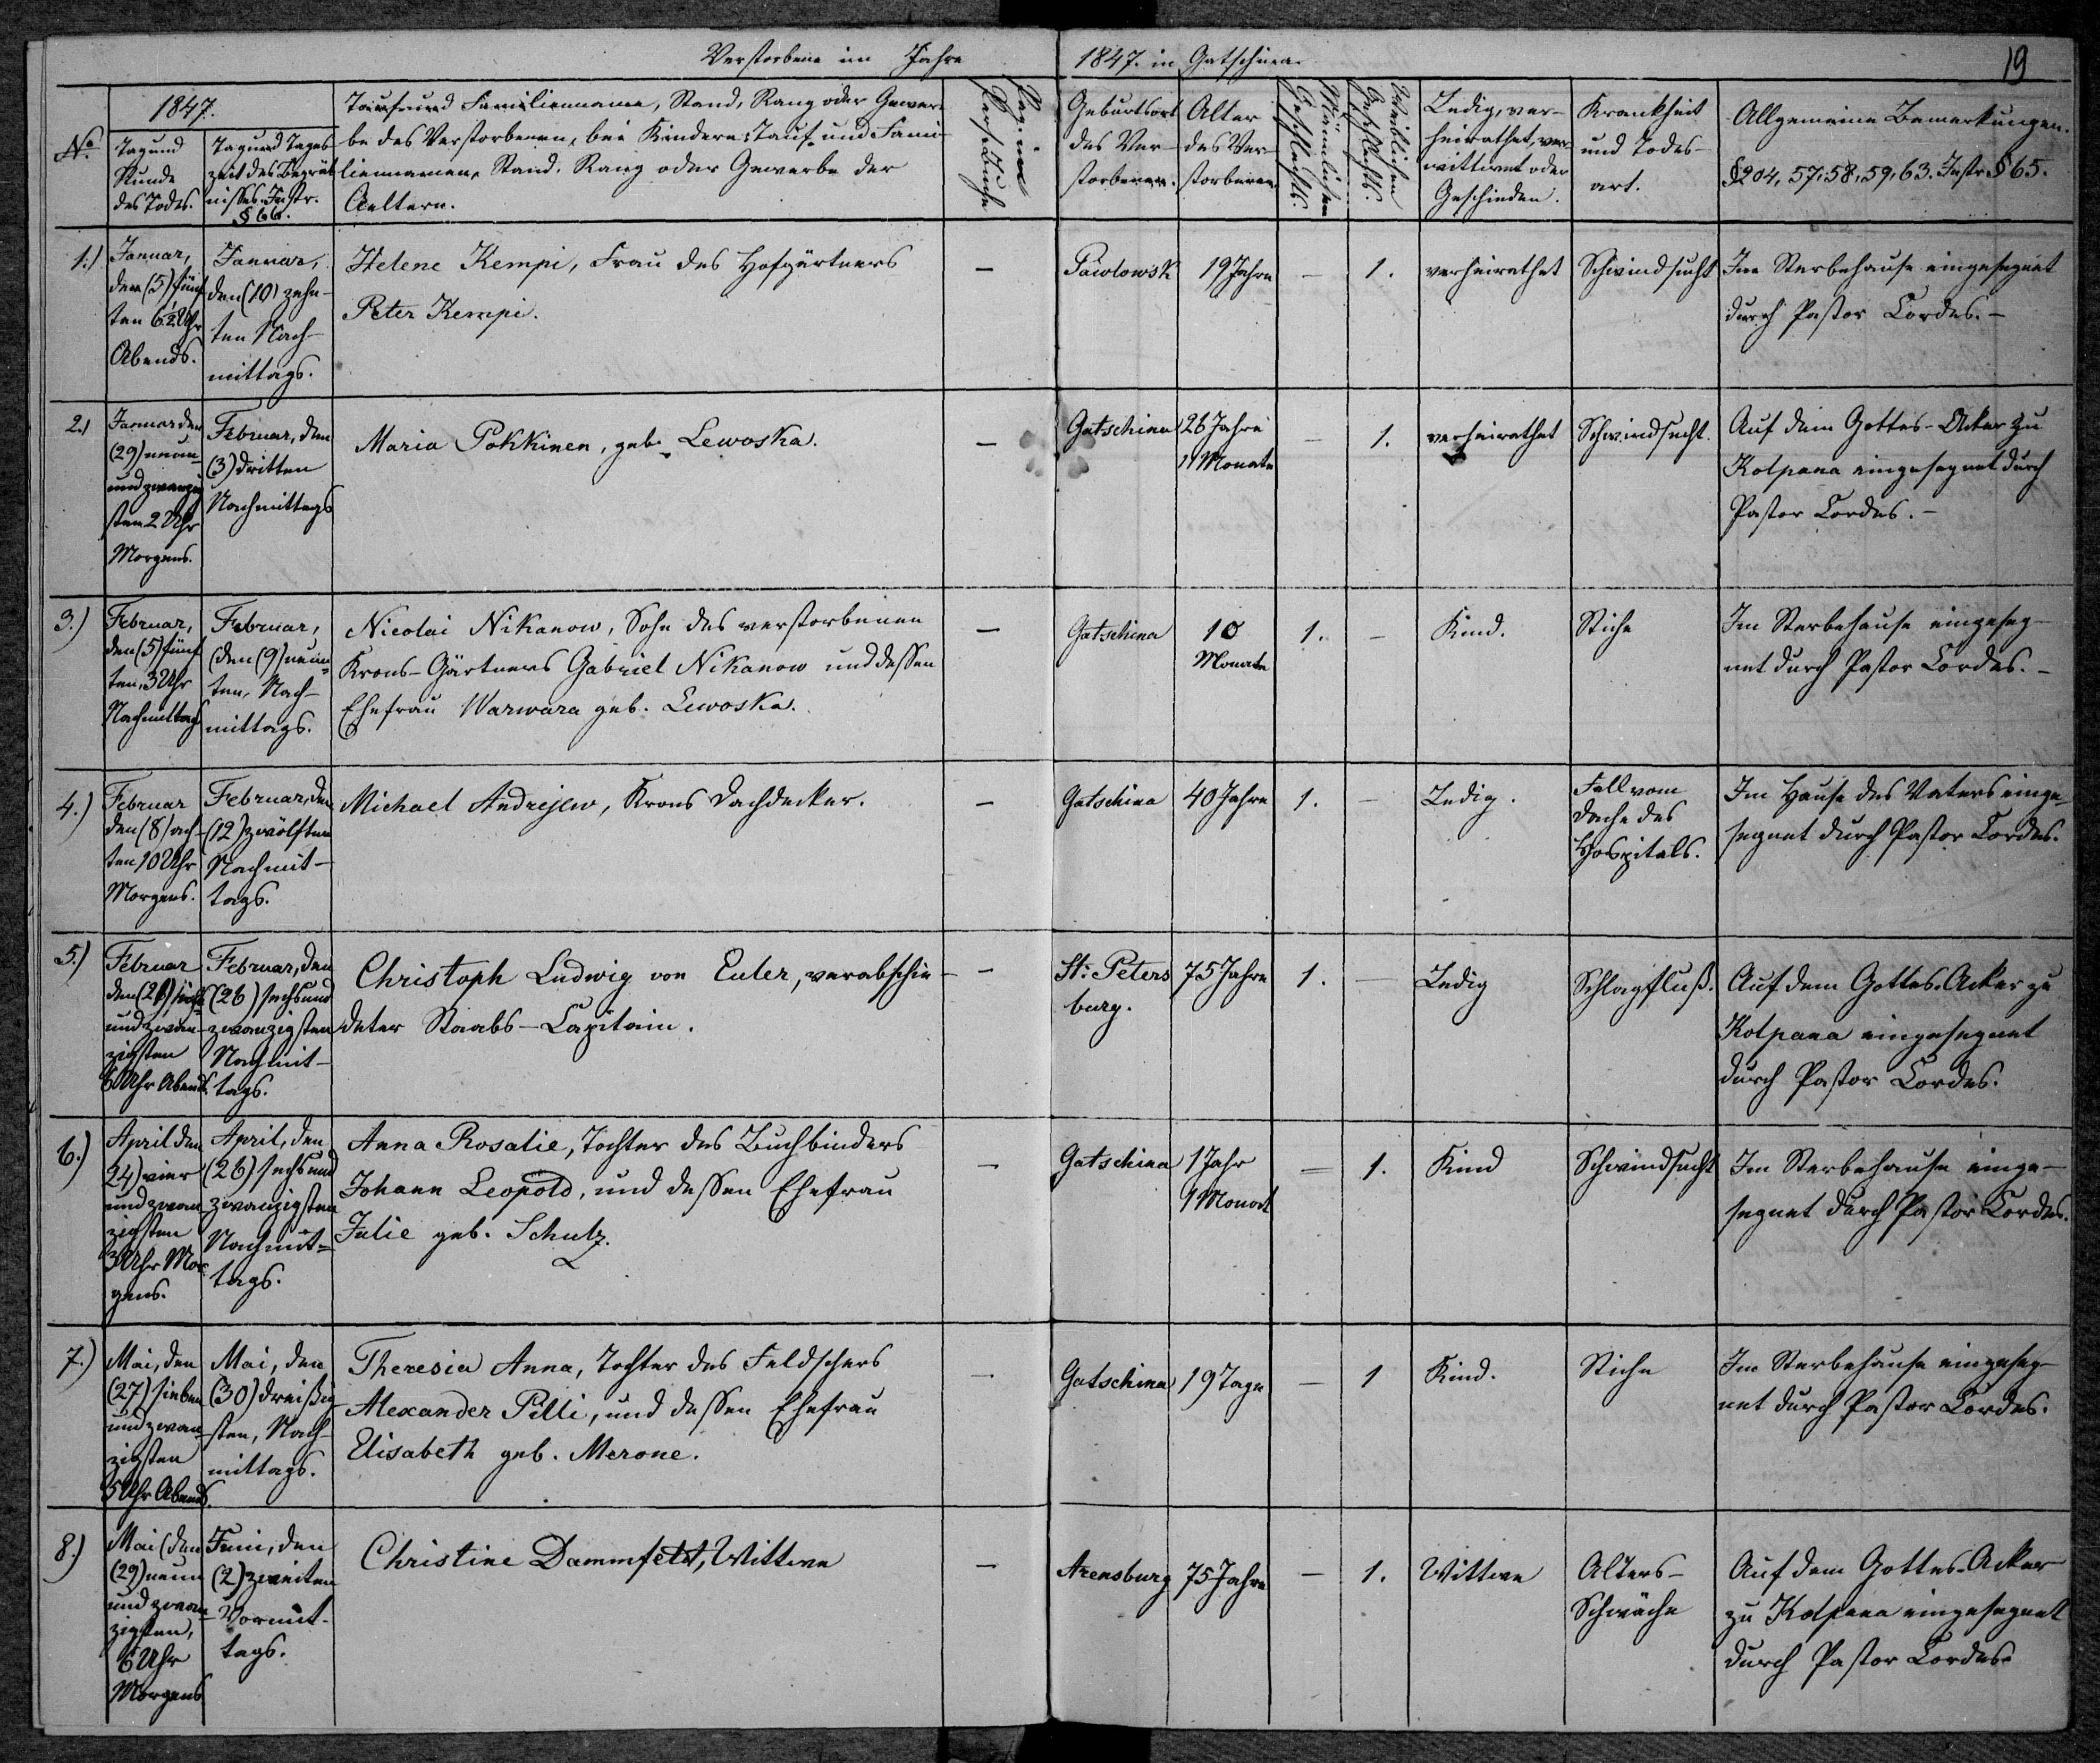 Verstorbene im Jahre 1847. in Gatschina.
19
No.
1847.
Tag und
Stunde
des Todes.
Tag und Tages
zeit des Begräb
nisses. Instr.
§ 66.
Tauf und Familienname, Stand, Rang oder Gewer-
be des Verstorbenen, bei Kindern: Tauf- und Fami-
liennamen, Stand, Rang oder Gewerbe der
Aeltern.
Pag. im
Pers. Buche
Geburtsort
des Ver-
storbenen.
Alter
des Ver-
storbenen
Männlichen
Geschlechts.
Weiblichen
Geschlechts.
Ledig, ver-
heirathet, ver-
wittwet oder
Geschieden.
Krankheit
und Todes-
art.
Allgemeine Bemerkungen.
§204, 57, 58, 59, 63. Instr. § 65.
1.)
Januar,
den (5) fünf
ten 6½ Uhr
Abends.
Januar,
den (10) zehn-
ten Nach-
mittags.
Helene Kempi, Frau des Hofgärtners
Peter Kempi.
—
Pawlowsk
19 Jahre
—
1.
verheirathet
Schwindsucht
Im Sterbehause eingesegnet
durch Pastor Cordes. —
2.)
Januar den
(29) neun-
und zwanzig
sten 2 Uhr
Morgens.
Februar, den
(3) dritten
Nachmittags
Maria Pokkinen, geb. Lewoska.
—
Gatschina
26 Jahre
11 Monate
—
1.
verheirathet
Schwindsucht.
Auf dem Gottes-Acker zu
Kolpana eingesegnet durch
Pastor Cordes. —
3.)
Februar,
den (5) fünf
ten, 3 Uhr
Nachmittags
Februar,
(den (9) neun-
ten, Nach-
mittags.
Nicolai Nikanow, Sohn des verstorbenen
Krons-Gärtners Gabriel Nikanow und dessen
Ehefrau Warwara geb. Lewoska.
—
Gatschina
10
Monate
1.
—
Kind.
Stiche
Im Sterbehause eingeseg-
net durch Pastor Cordes. —
4.)
Februar
den (8) ach-
ten 10 Uhr
Morgens.
Februar, den
(12) zwölften
Nachmit-
tags.
Michael Andrejew, Krons Dachdecker.
—
Gatschina
40 Jahre
1.
—
Ledig.
Fall vom
Dache des
Hospitals.
Im Hause des Vaters einge-
segnet durch Pastor Cordes.
5.)
Februar
und zwan-
zigsten
6 Uhr Abends.
Februar, den
(26) sechs und
zwanzigsten
Nachmit-
tags.
Christoph Ludwig von Euler, verabschie-
deter Staabs-Capitain.
—
St: Peters
burg.
75 Jahre
1.
—
Ledig
Schlagfluß.
Auf dem Gottes-Acker zu
Kolpana eingesegnet
durch Pastor Cordes.
6.)
April den
24) vier
und zwan
zigsten
3 Uhr Mor
gens.
April, den
(26) sechs und
zwanzigsten
Nachmit-
tags.
Anna Rosalie, Tochter des Buchbinders
Johann Leopold, und dessen Ehefrau
Julie geb. Schulz.
—
Gatschina
1 Jahr
1 Monat
—
1.
Kind
Schwindsucht
Im Sterbehause einge-
segnet durch Pastor Cordes.
7.)
Mai, den
(27) sieben
und zwan-
zigsten
5 Uhr Abends.
Mai, den
(30) dreißig
sten, Nach-
mittags.
Theresia Anna, Tochter des Feldschers
Alexander Pilli, und dessen Ehefrau
Elisabeth geb. Merone.
—
Gatschina
19 Tage
—
1
Kind.
Stiche
Im Sterbehause eingeseg-
net durch Pastor Cordes.
8.)
Mai (den
(29) neun
und zwan-
zigsten,
6 Uhr
Morgens
Juni, den
(2) zweiten
Vormit-
tags.
Christine Dammfeldt, Wittwe
—
Arensburg
75 Jahre
—
1.
Wittwe
Alters-
Schwäche
Auf dem Gottes-Acker
zu Kolpana eingesegnet
durch Pastor Cordes.